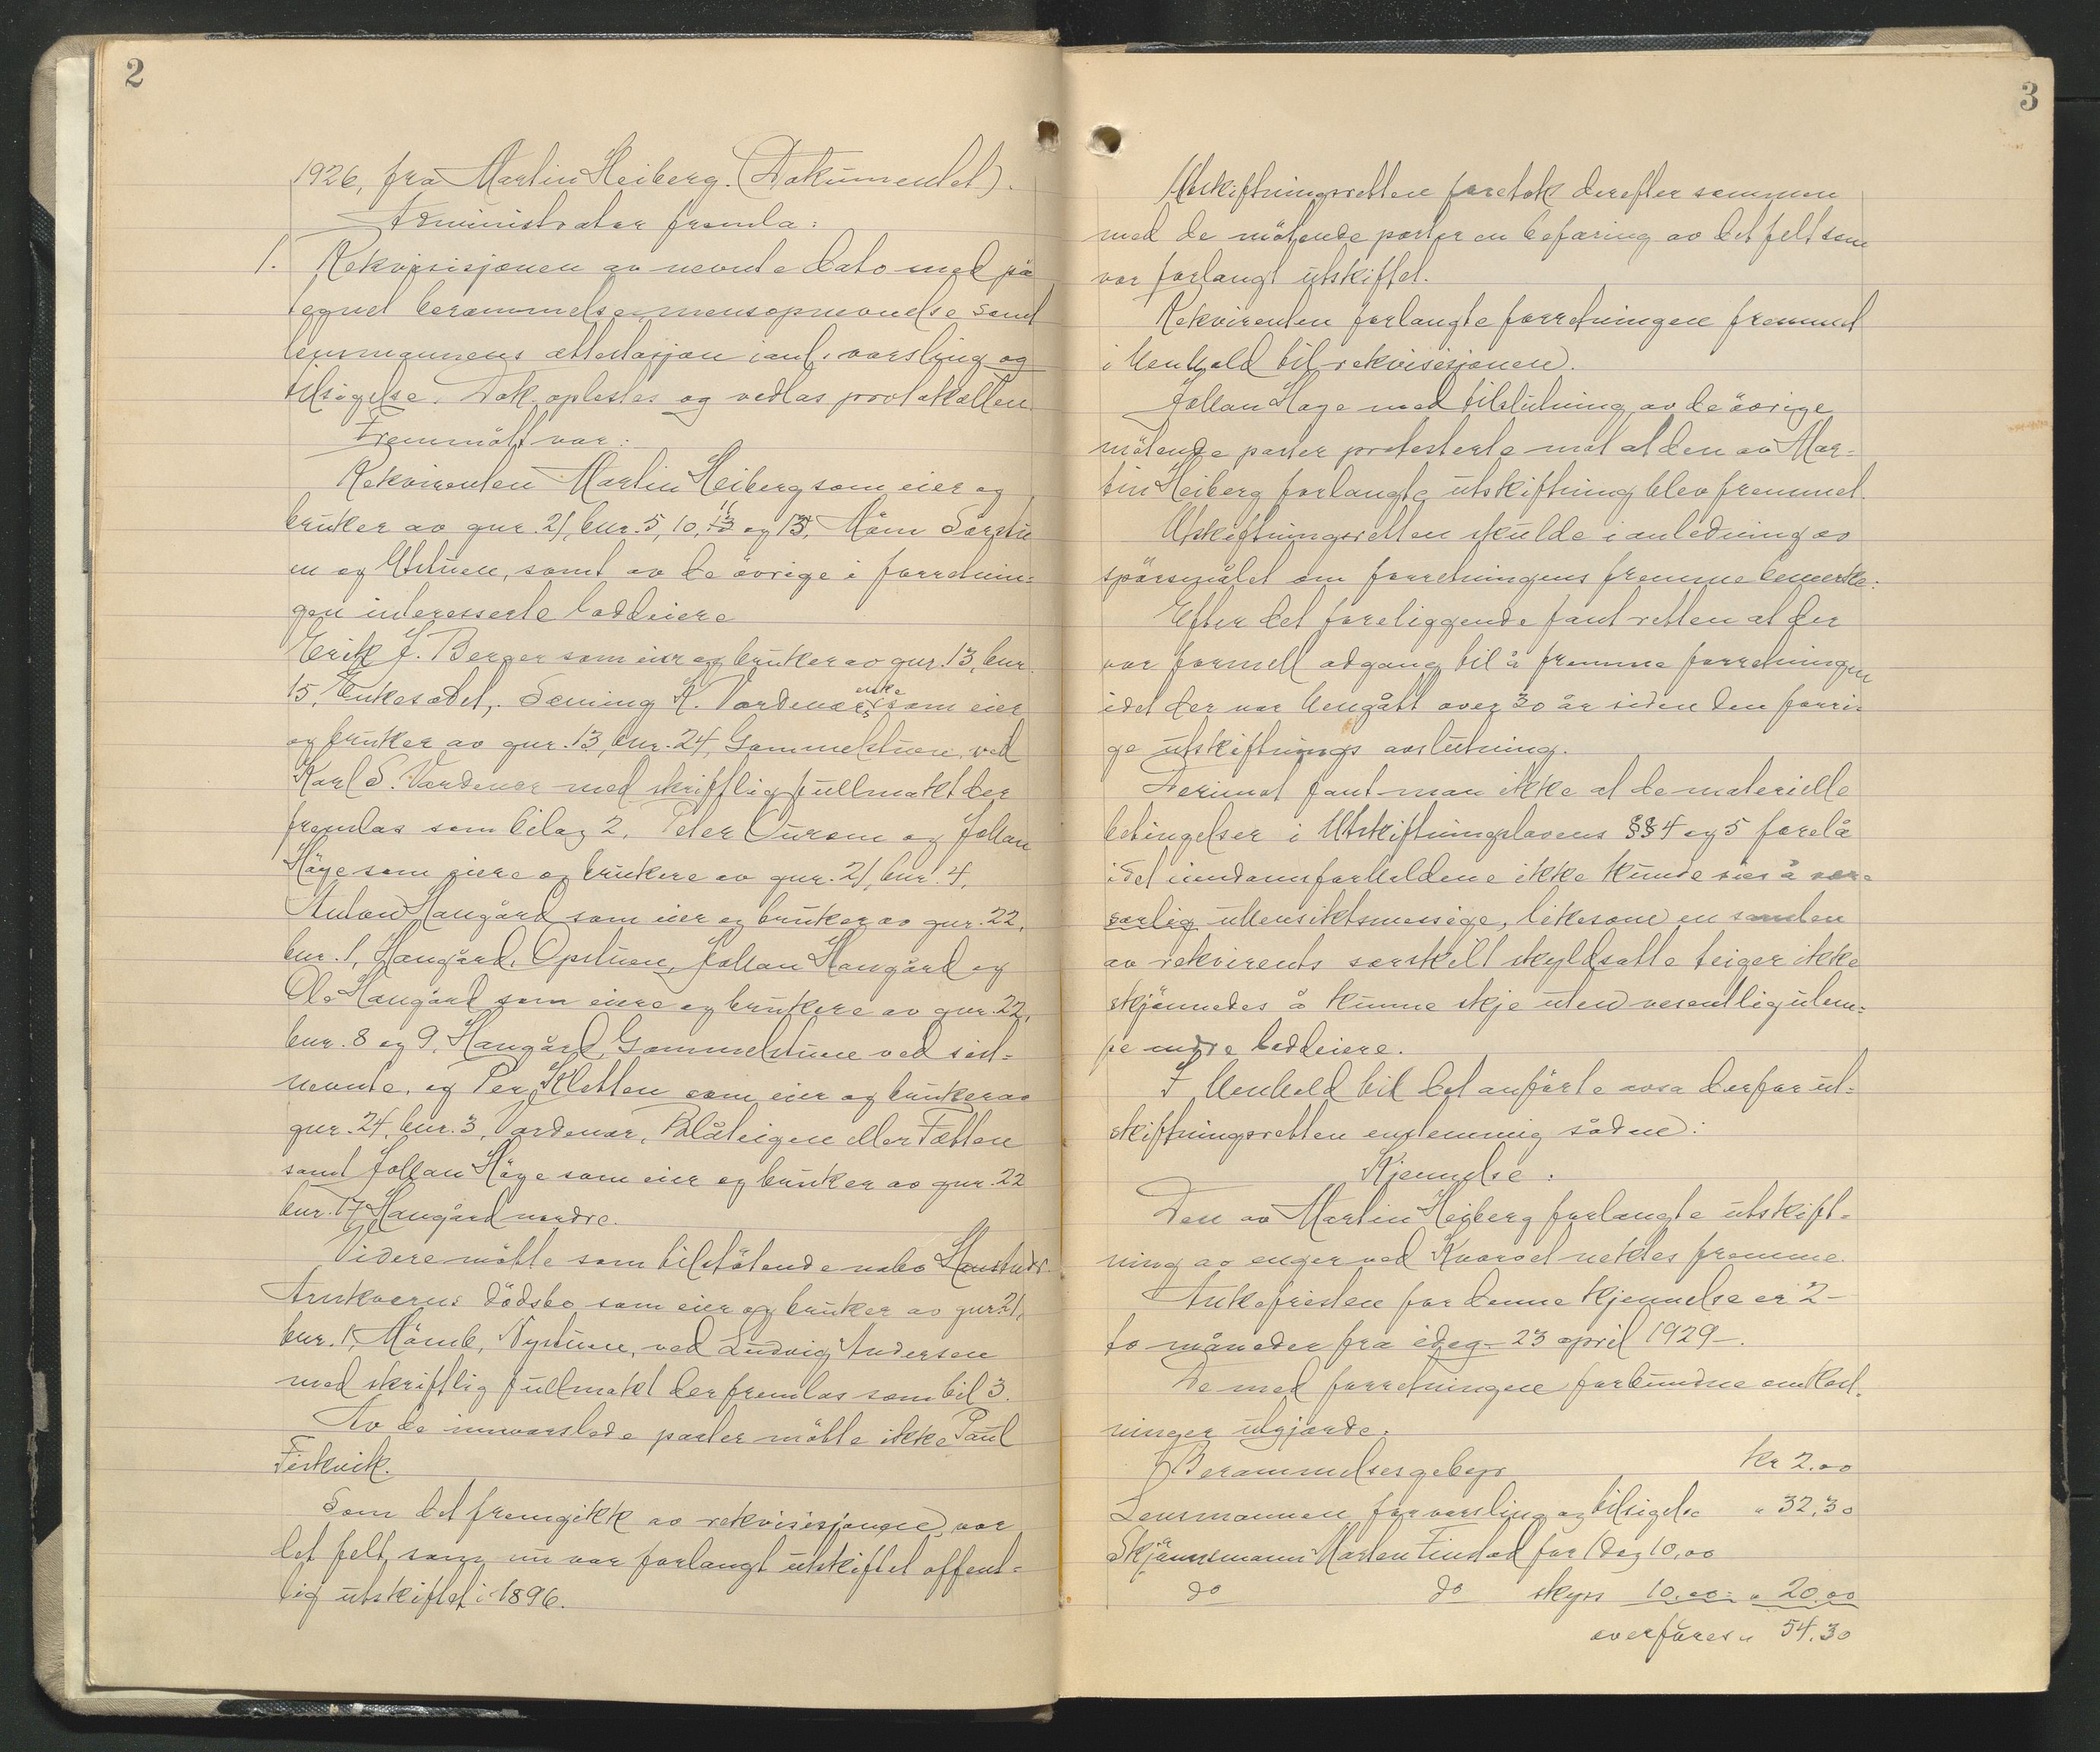 2
1926, fra Martin Heiberg. (Dokumentet).
Administrator fremla:
1. Rekvisisjonen av nevnte dato med på
tegnet berammelse, mensopnevnelse samt
lensmannens attestasjon ianl. varsling og
tilsigelse. Dok. oplestes og vedlas protokollen.
Fremmött var:
Rekvirenten Martin Heiberg som eier og
bruker av gnr. 21, bnr. 5, 10, 11 og 13, Möm Sörstu
en og Utstuen, samt av de övrige i forretnin-
gen interesserte loddeiere
Erik J. Berger som eier og bruker av gnr. 13, bnr.
15, Enkesædet, Sæming K. Vardenærs enke som eier
og bruker av gnr. 13, bnr. 24, Gammelstuen, ved
Karl S. Vardenær med skriftlig fullmakt der
fremlas som bilag 2, Peter Turom og Johan
Höye som eiere og brukere av gnr. 21, bnr. 4,
Anton Haugård som eier og bruker av gnr. 22,
bnr. 1, Haugård, Opstuen, Johan Haugård og
Ole Haugård som eiere og brukere av gnr. 22,
bnr. 8 og 9, Haugård Gammelstuen ved sist-
nevnte, og Per Kletten som eier og bruker av
gnr. 24, bnr. 3, Vardenær, Blåteigen eller Tætten
samt Johan Höye som eier og bruker av gnr. 22
bnr. 17 Haugård nordre.
Videre mötte som tilstötende nabo
dödsbo som eier og bruker av gnr. 21,
bnr. 1, Nystuen, ved Ludvig Andersen
med skriftlig fullmakt der fremlas som bil 3.
Av de innvarslede parter mötte ikke Paul
Fiskvik.
Som det fremgikk av rekvisisjonen var
det felt som nu var forlangt utskiftet offent-
lig utskiftet i 1896.
3
Utskiftningsretten foretok derefter sammen
med de mötende parter en befaring av det felt som
var forlangt utskiftet.
Rekvirenten forlangte forretningen fremmet
i henhold til rekvisisjonen.
Johan Höye med tilslutning av de övrige
mötende parter protesterte mot at den av Mar-
tin Heiberg forlangte utskiftning blev fremmet.
Utskiftningsretten skulde i anledning av
spörsmålet om forretningens fremme bemerke:
Efter det foreliggende fant retten at der
var formell adgang til å fremme forretningen
idet der var hengått over 30 år siden den forri-
ge utskiftnings avslutning.
Derimot fant man ikke at de materielle
betingelser i Utskiftningslovens §§ 4 og 5 forelå
idet eiendomsforholdene ikke kunde sies å være
særlig uhensiktsmessige, likesom en samlen
av rekvirents særskilt skyldsatte teiger ikke
skjönnedes å kunne skje uten vesentlig ulem-
pe andre loddeiere.
I henhold til det anförte avsa derfor ut-
skiftningsretten enstemmig sådan:
Kjennelse:
Den av Martin Heiberg forlangte utskift-
ning av enger ved Kvævet nektes fremme.
Ankefristen for denne kjennelse er 2-
to måneder fra idag - 23 april 1929-.
De med forretningen forbundne omkost-
ninger utgjorde:
Berammelsesgebyr kr 2.00
Lensmannen for varsling og tilsigelse " 32,30
Skjönnsmann Morten Finstad for 1 dag 10,00
do do skyss 10.00 = " 20.00
overföres " 54.30